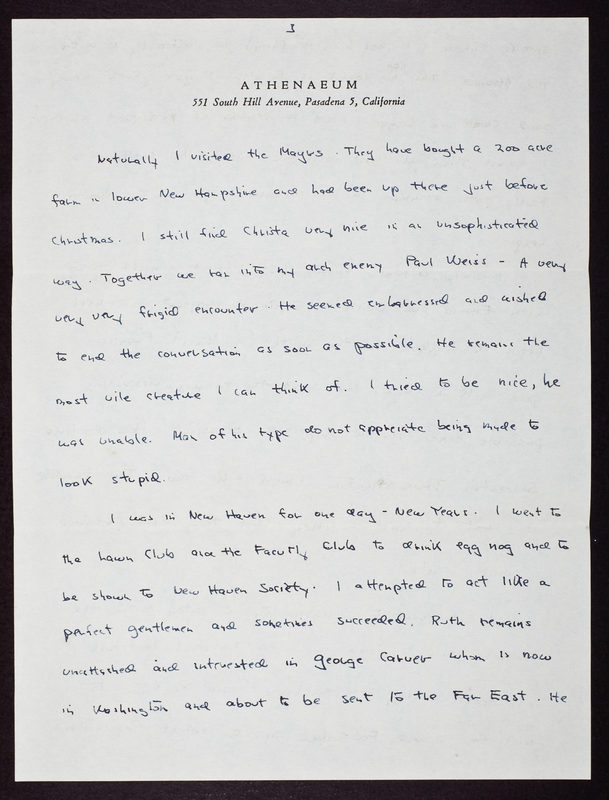 3
ATHENAEUM
551 South Hill Avenue, Pasadena 5, California
Naturally I visited the Mayrs. They have bought a 200 acre
farm in lower New Hampshire and had been up there just before
Christmas. I still find Christa very nice in an unsophisticated
way. Together we ran into my arch enemy Paul Weiss - A very
very very frigid encounter. He seemed embarressed and wished
to end the conversation as soon as possible. He remains the
most vile creature I can think of. I tried to be nice, he
was unable. Men of his type do not appreciate being made to
look stupid.
I was in New Haven for one day - New Years. I went to
the Lawn Club and the Faculty Club to drink egg nog and to
be shown to New Haven Society. I attempted to act like a
perfect gentlemen and sometimes succeeded. Ruth remains
unattached and interested in George Carver whom is now
in Washington and about to be sent to the Far East. He